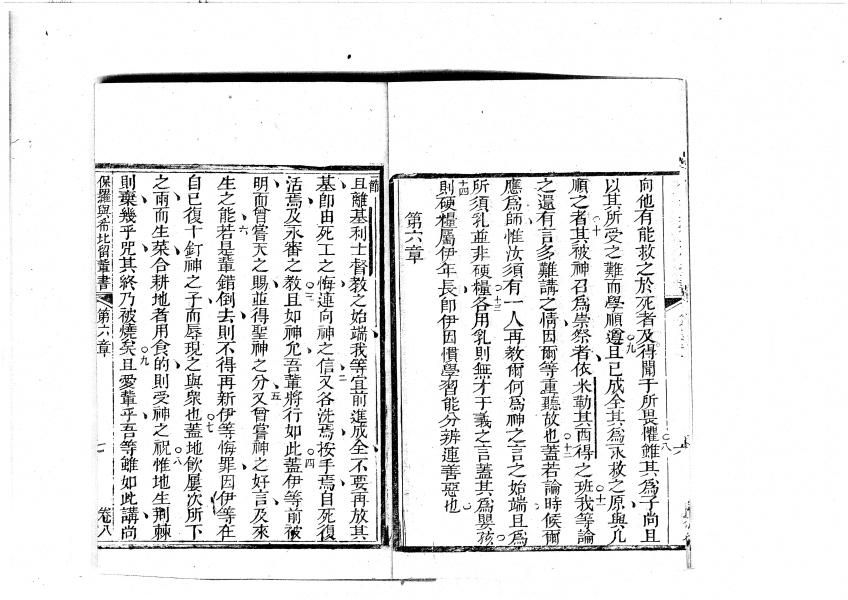 向他有能救之於死者及得聞于所畏懼雖其爲子尚且
以其所受之難而學順遵且已成全其爲永救之原與凡
順之者其被神召爲崇祭者依米勒其西得之班我等論
之還有言多難講之情因爾等重聽故也蓋若論時候爾
應爲師惟汝須有一人再教爾何爲神之言之始端且爲
所須乳並非硬糧各用乳則無才于義之言蓋其爲嬰孩
則硬糧屬伊年長即伊因慣學習能分辨連善惡也
第六章
一節
且離基利士督教之始端我等宜前進成全不要再放其
基即由死工之悔連向神之信又各洗焉按手焉自死復
活焉及永審之教且如神允吾輩將行如此蓋伊等前被
明而曾嘗天之賜並得聖神之分又曾嘗神之好言及來
生之能若是輩錯倒去則不得再新伊等悔罪因伊等在
自已復十釘神之子而辱現之與衆也蓋地飲屢次所下
之雨而生菜合耕地者用食的則受神之祝惟地生荆棘
則棄幾乎咒其終乃被燒矣且愛輩乎吾等雖如此講尚
保羅與希比留輩書
第六章
卷八